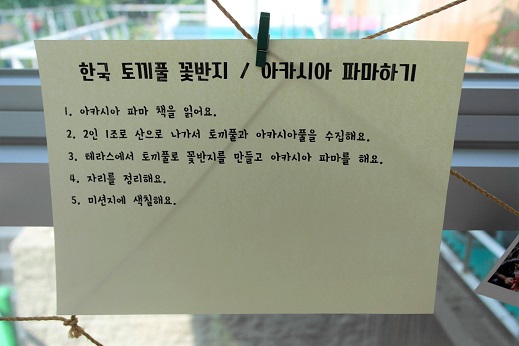 한국 토끼풀 꽃반지 / 아카시아 파마하기
1. 아카시아 파마 책을 읽어요.
2. 2인 1조로 산으로 나가서 토끼풀과 아카시아풀을 수집해요.
3. 테라스에서 토끼풀로 꽃반지를 만들고 아카시아 파마를 해요.
4. 자리를 정리해요.
5. 미션지에 색칠해요.